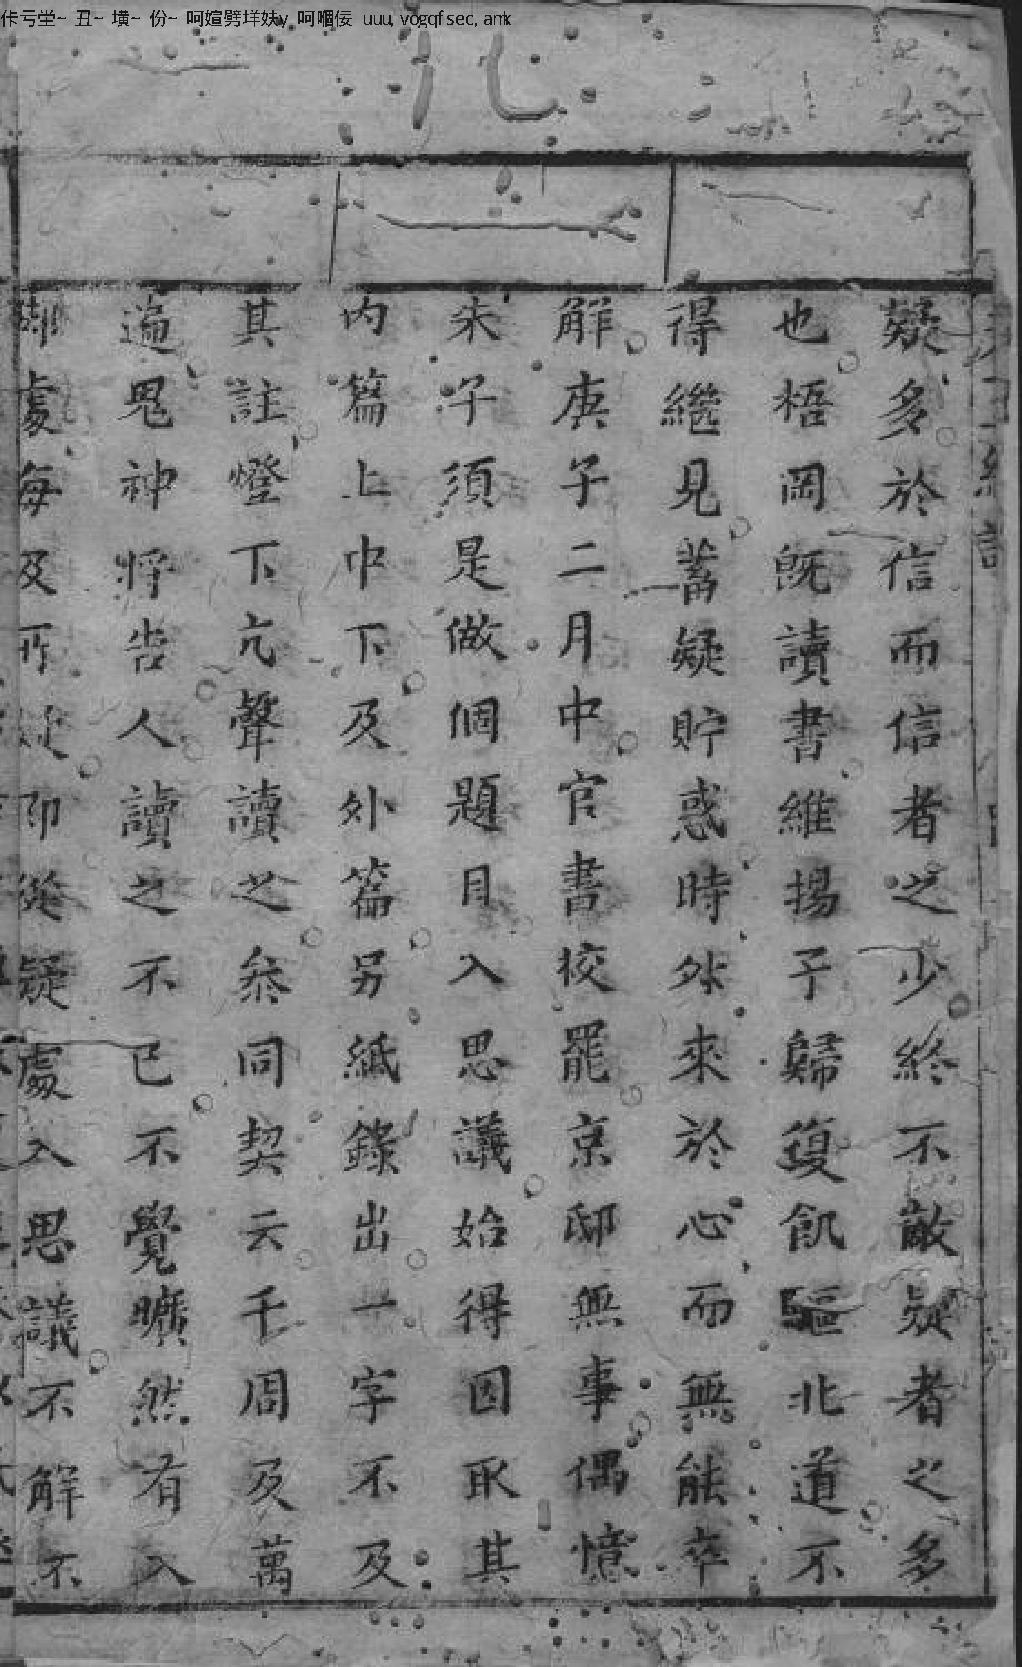 疑多於信而信者之少終不敵疑者之多
也梧岡既讀書維揚子歸復飢驅北道不
得繼見蓄疑貯惑時往來於心而無能卒
解庚子二月中官書校罷京邸無事偶憶
朱子須是做個題目入思議始得因取其
內篇上中下及外篇另紙錄出一字不及
其註燈下亢聲讀之叅同契云千周及萬
遍鬼神將告人讀之不已不覺曠然有入
處每及所疑即從疑處入思議不解不